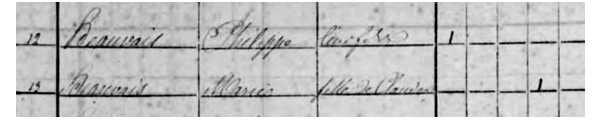 12 Beauvais Philippe leur fils 1
13 Beauvais Marie fille de 1